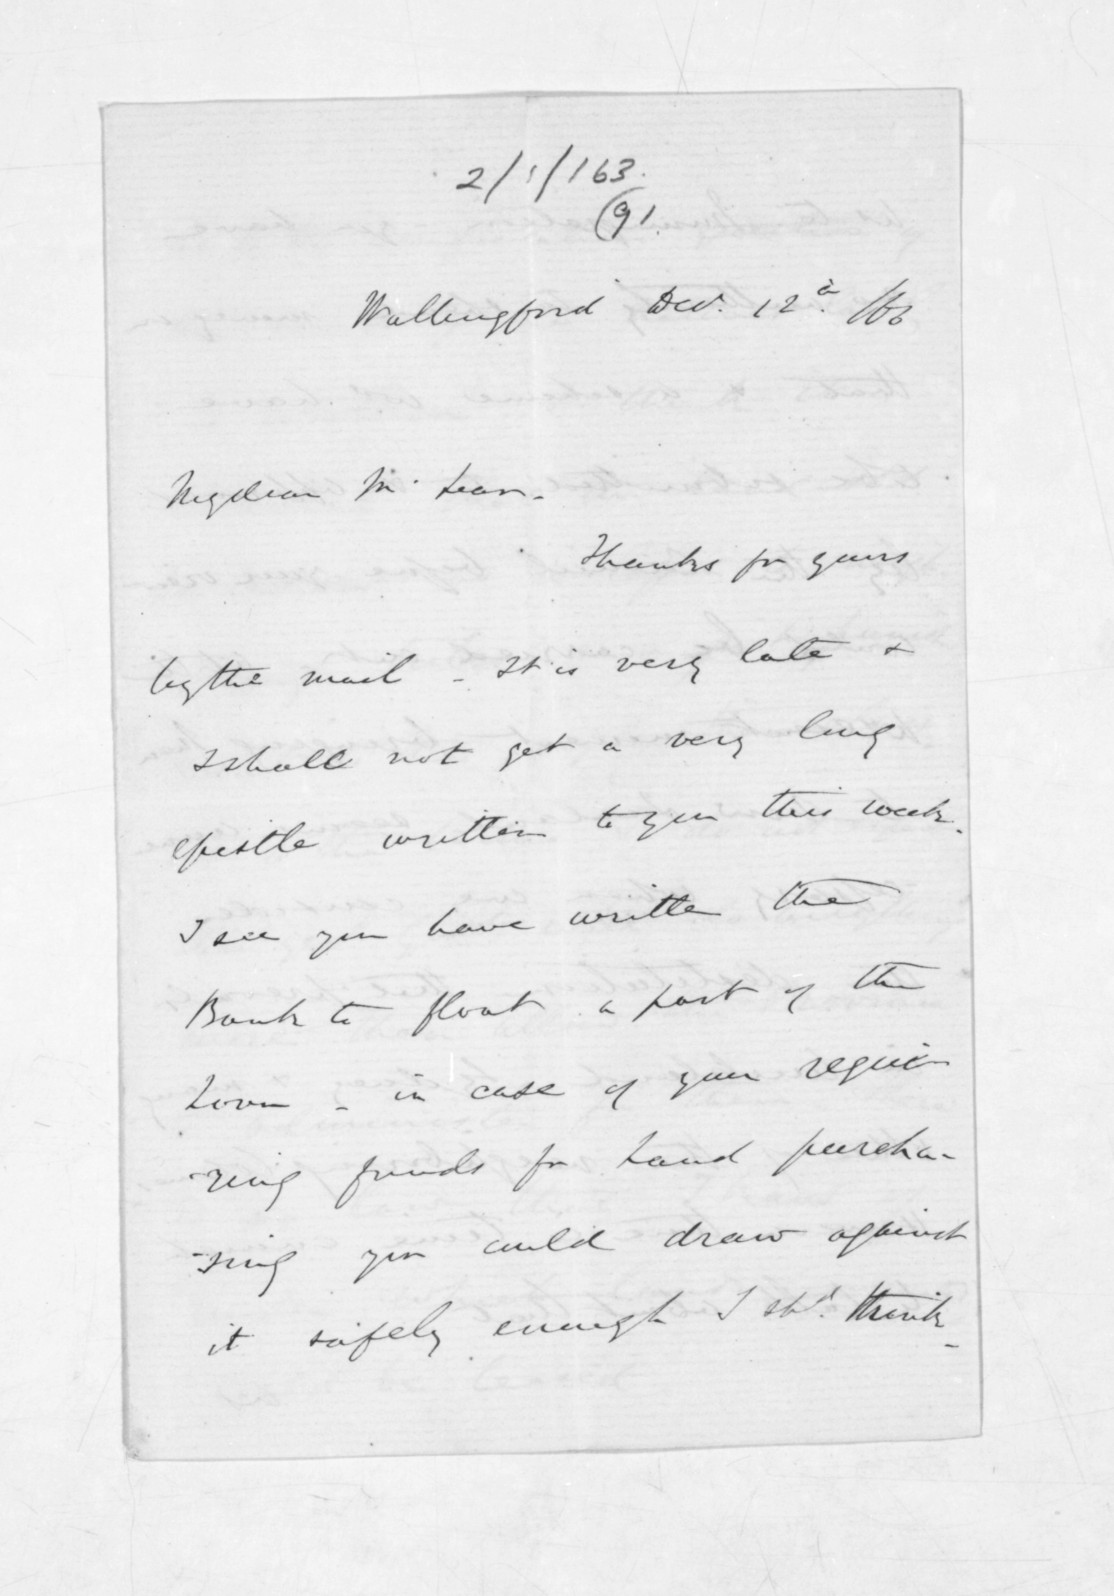 2/1/163.
(91.
Wallingford Decr. 12th /66
My dear Mc Lean -
Thanks for yours
by the mail - It is very late &
I shall not get a very long
epistle written to you this week.
I see you have written the
Bank to float a part of the
Loan - in case of your requi-
-ring funds for Land purcha-
-sing you could draw against
it safely enough I shd. think -